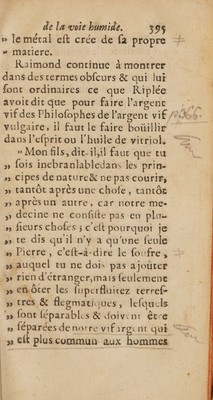 de la voie humide. 395
„ le métal est crée de sa propre
„ matiere.
Raimond continuë à montrer
dans des termes obscurs & qui lui
sont ordinaires ce que Riplée
avoit dit que pour faire l'argent
vif des Philosophes de l'argent vif
vulgaire, il faut le faire boüillir
dans l'esprit ou l'huile de vitriol.
„ Mon fils, dit-il, il faut que tu
„ sois inebranlable dans les prin-
„ cipes de nature & ne pas courir,
„ tantôt après une chose, tantôt
„ après un autre, car notre me-
„ decine ne consiste pas en plu-
„ sieurs choses ; c'est pourquoi je
„ te dis qu'il n'y a qu'une seule
„ Pierre, c'est-à-dire le soufre,
„ auquel tu ne dois pas ajoûter
„ rien d'étranger, mais seulement
„ en ôter les superfluitez terres-
„ tres & flegmatiques, lesquels
„ sont séparables & doivent être
„ séparées de notre vif argent qui
„ est plus commun aux hommes